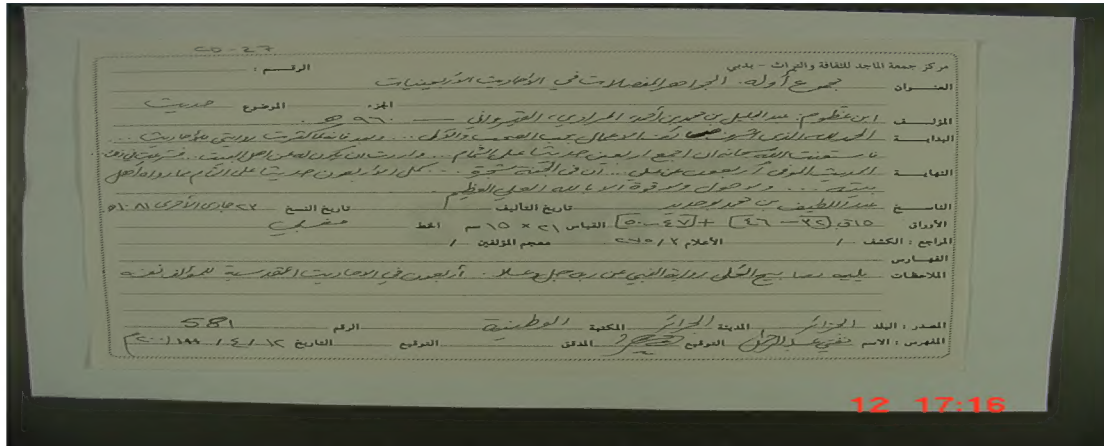 CD - 27
مركز جمعة الماجد للثقافة والتراث - بدبي الرقم :
العنوان مجموع أوله: الجواهر المفصلات في الأحاديث الأربعينيات
المؤلف ابن عظوم: عبد الجليل بن محمد بن أحمد، المرادي، القيرواني - ٩٦٠ هـ الجزء الموضوع حديث
البداية الحمد لله الذي الأعمال والذكر ... وبعد فإنه لما كثرت
فاستعنت الله سبحانه أن أجمع أربعين حديثا على التمام ... وأردت أن يكون له عن أهل البيت ..
النهاية الحديث الموفي أربعون عن علي ... أن في الجنة شجرة ... كمل الأربعون حديثا على التمام مما رواه أهل
بيته ... ولا حول ولا قوة إلا بالله العلي العظيم
الناسخ عبد اللطيف بن محمد بوحديد تاريخ التأليف تاريخ النسخ ٢٣ جمادى الأخرى ١٠٨١ هـ
الأوراق ١٥ ق (٣٢ - ٤٦) + (٤٧ - ٥٠) القياس ٢١ × ١٥ سم الخط مغربي
المراجع : الكشف / الأعلام ٣ / ٢٧٥ معجم المؤلفين /
الفهارس
الملاحظات يليه مصابيح رواية النبي عن ربه جل وعلا. أربعون في الأحاديث القدسية للمؤلف نفسه
المصدر : البلد الجزائر المدينة الجزائر المكتبة الوطنية الرقم 581
المفهرس : الاسم التوقيع المدقق التوقيع التاريخ ١٢ / ٤ / ١٩٩ (٢٠٠٠ م)
12 17:16